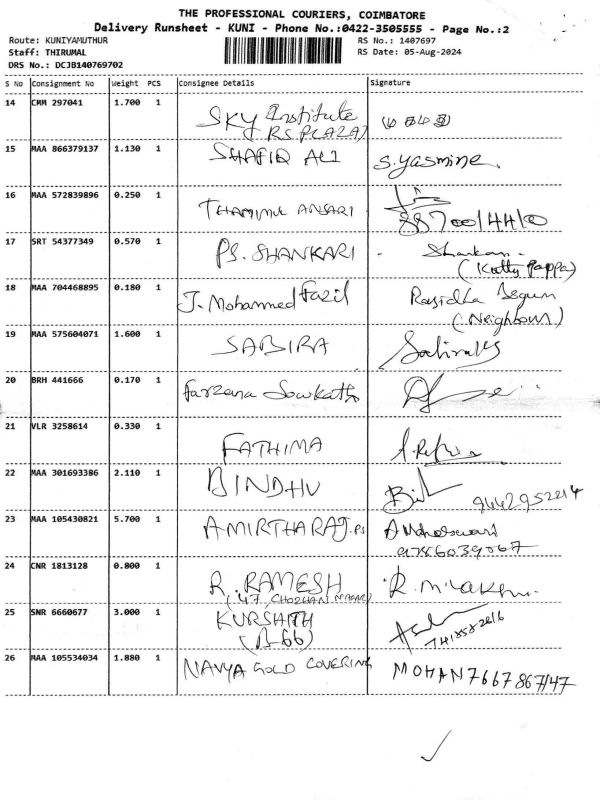 THE PROFESSIONAL COURIERS, COIMBATORE
Delivery Runsheet - KUNI - Phone No.:0422-3505555 - Page No.:2
Route: KUNIYAMUTHUR RS No.: 1407697
Staff: THIRUMAL RS Date: 05-Aug-2024
DRS No.: DCJB140769702
S No Consignment No Weight PCS Consignee Details Signature
14 CMM 297041 1.700 1 SKY Institute
RS PLAZA)
15 MAA 866379137 1.130 1 SHAFIQ ALI S.Yasmine.
16 MAA 572839896 0.250 1 THAMIMUL ANSARI
17 SRT 54377349 0.570 1 PS. SHANKARI
(Kutty Pappa)
18 MAA 704468895 0.180 1 J. Mohammed Fazil Rasidha Begum
(Neighbour)
19 MAA 575604071 1.600 1 SABIRA
20 BRH 441666 0.170 1 Farzana Sowkath
21 VLR 3258614 0.330 1 FATHIMA
22 MAA 301693386 2.110 1 BINDHU
9442952214
23 MAA 105430821 5.700 1 AMIRTHARAJ.PS
24 CNR 1813128 0.800 1 R. RAMESH
(47, CHOZHAN NAGAR)
25 SNR 6660677 3.000 1 KURSHITH
(B-66)
26 MAA 105534034 1.880 1 NAVYA GOLD COVERING MOHAN 7667867147